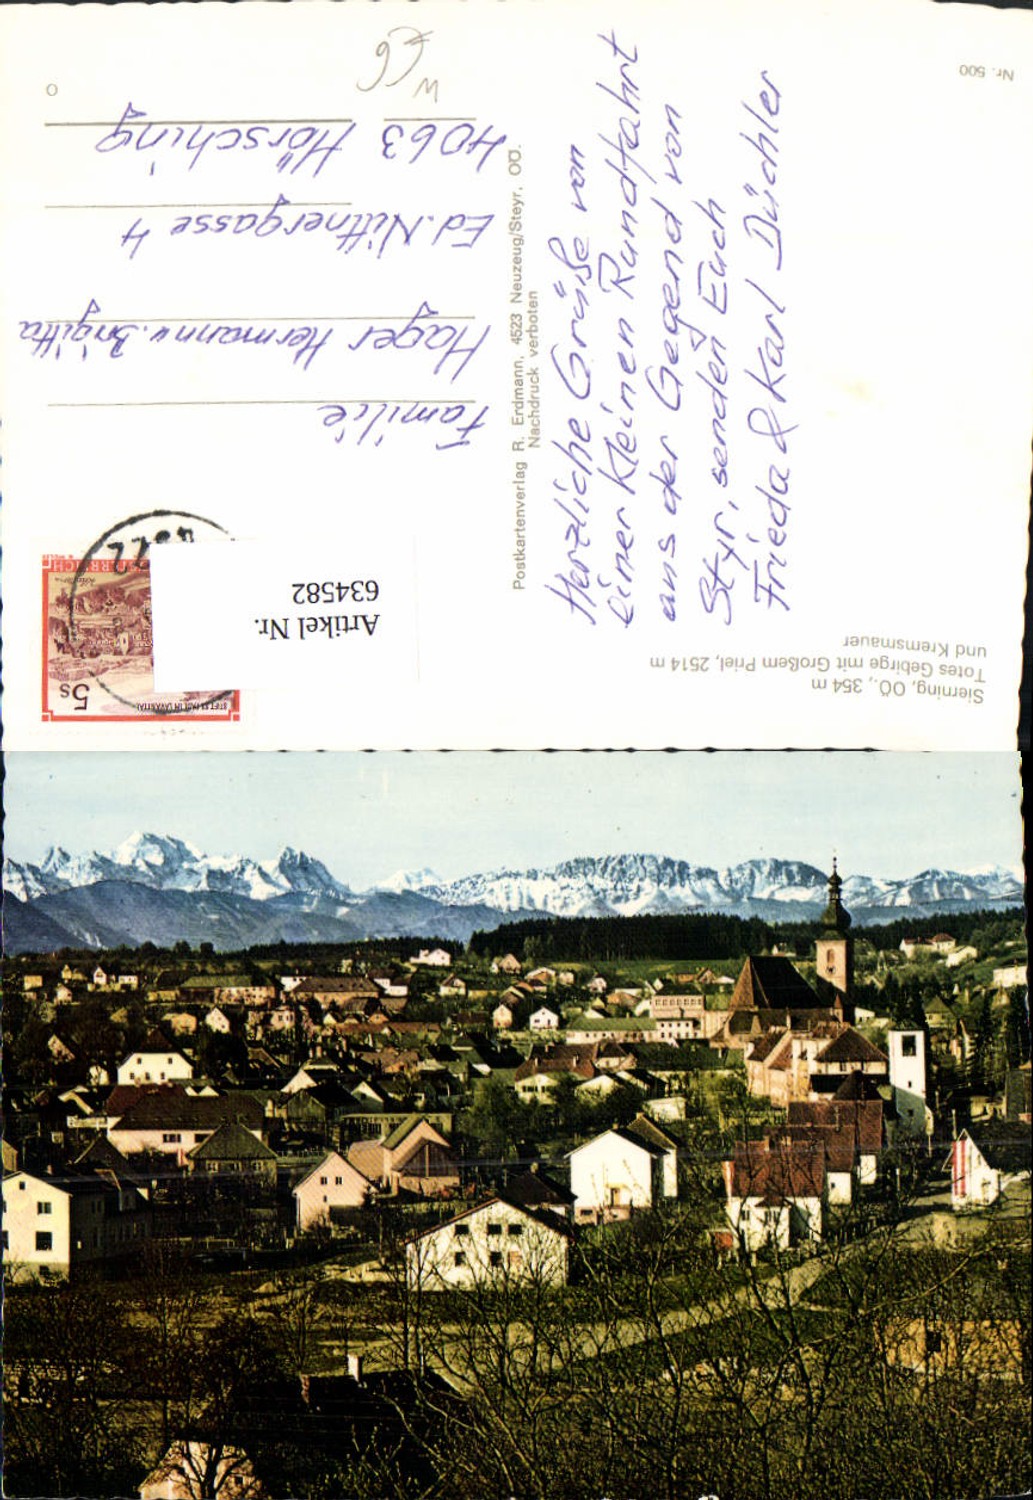 Nr. 500
Sierning, OÖ., 354 m
Totes Gebirge mit Großem Priel, 2514 m
und Kremsmauer
Herzliche Grüße von
einer kleinen Rundfahrt
aus der Gegend von
Styr, senden Euch
Frieda & Karl Düchler
Postkartenverlag R. Erdmann, 4523 Neuzeug/Steyr, OÖ.
Nachdruck verboten
5s
Artikel Nr.
634582
Familie
Hager Hermann u. Brigitta
Ed. Nittnergasse 4
4063 Hörsching